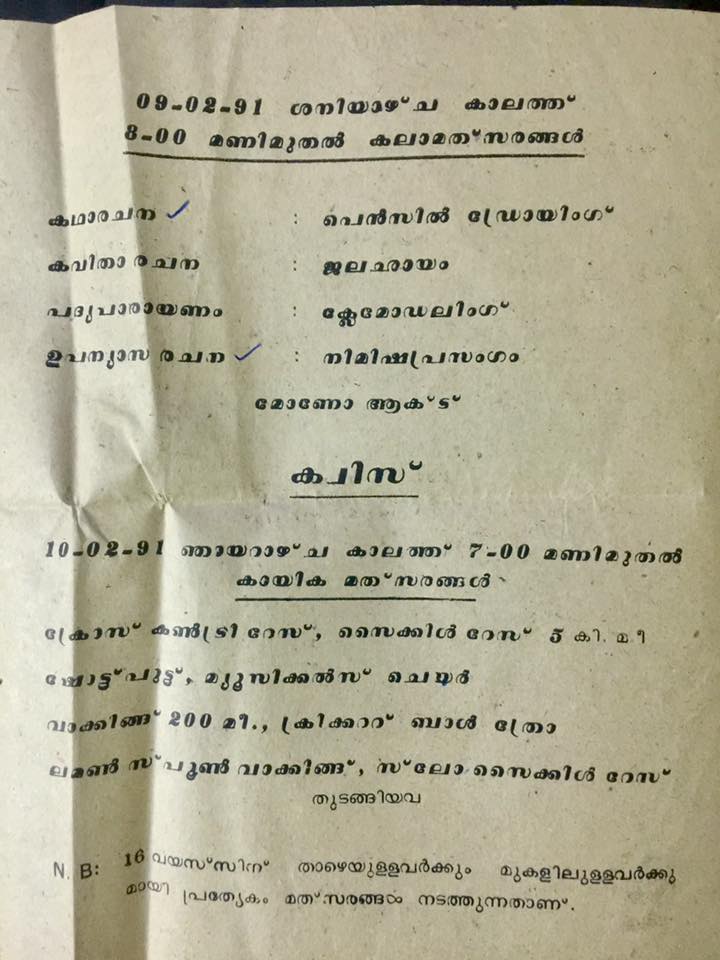 09-02-91 ശനിയാഴ്ച കാലത്ത്
8-00 മണിമുതൽ കലാമത്സരങ്ങൾ
കഥാരചന : പെൻസിൽ ഡ്രോയിംഗ്
കവിതാ രചന : ജലഛായം
പദ്യപാരായണം : ക്ലേമോഡലിംഗ്
ഉപന്യാസ രചന : നിമിഷപ്രസംഗം
മോണോ ആക്ട്
ക്വിസ്
10-02-91 ഞായറാഴ്ച കാലത്ത് 7-00 മണിമുതൽ
കായിക മത്സരങ്ങൾ
ക്രോസ് കൺട്രി റേസ്, സൈക്കിൾ റേസ് 5 കി. മീ
ഷോട്ട്പുട്ട്, മ്യൂസിക്കൽസ് ചെയർ
വാക്കിങ്ങ് 200 മീ., ക്രിക്കററ് ബാൾ ത്രോ
ലമൺ സ്പൂൺ വാക്കിങ്ങ്, സ്ലോ സൈക്കിൾ റേസ്
തുടങ്ങിയവ
N. B: 16 വയസ്സിന് താഴെയുള്ളവർക്കും മുകളിലുള്ളവർക്കു
മായി പ്രത്യേകം മത്സരങ്ങൾ നടത്തുന്നതാണ്.